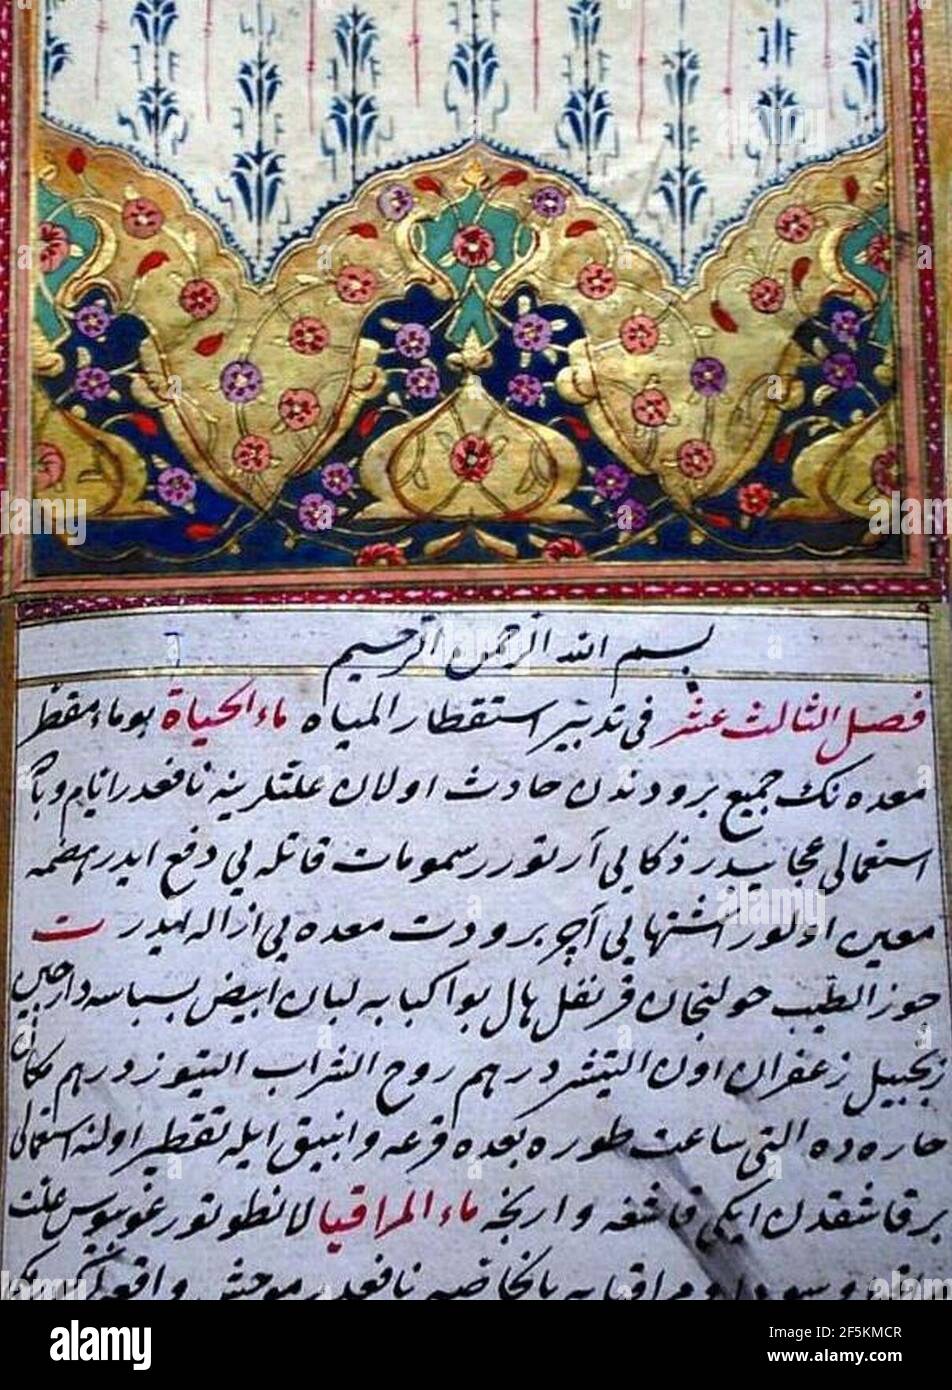 بسم الله الرحمن الرحيم
فصل الثالث عشر فى تدبير استقطار المياه ماء الحياة بو ماء مقطر
معده نك جميع برودتدن حادث اولان علتلرينه نافعدر ايام وباده
استعمالى عجايبدر ذكايى آرتورر سمومات قاتله يى دفع ايدر هضمه
معين اولور اشتهايى آچر برودت معده يى ازاله ايدر ت
جوز الطيب خولنجان قرنفل هال بوا كبابه لبان ابيض بسباسه دارچين
زنجبيل زعفران اون التيشر درهم روح الشراب التيوز درهم مكان
حاره ده التى ساعت طوره بعده قرعه و انبيق ايله تقطير اولنه استعمالى
بر قاشقدن ايكى قاشغه وارنجه ماء المراقيا لانطوتور غونيوس علت
مراقيايه بالخاصيه نافعدر
alamy
Image ID: 2F5KMCR
www.alamy.com